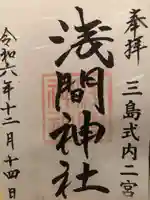 奉拝
三島式内二宮
浅間神社
令和六年十二月十四日